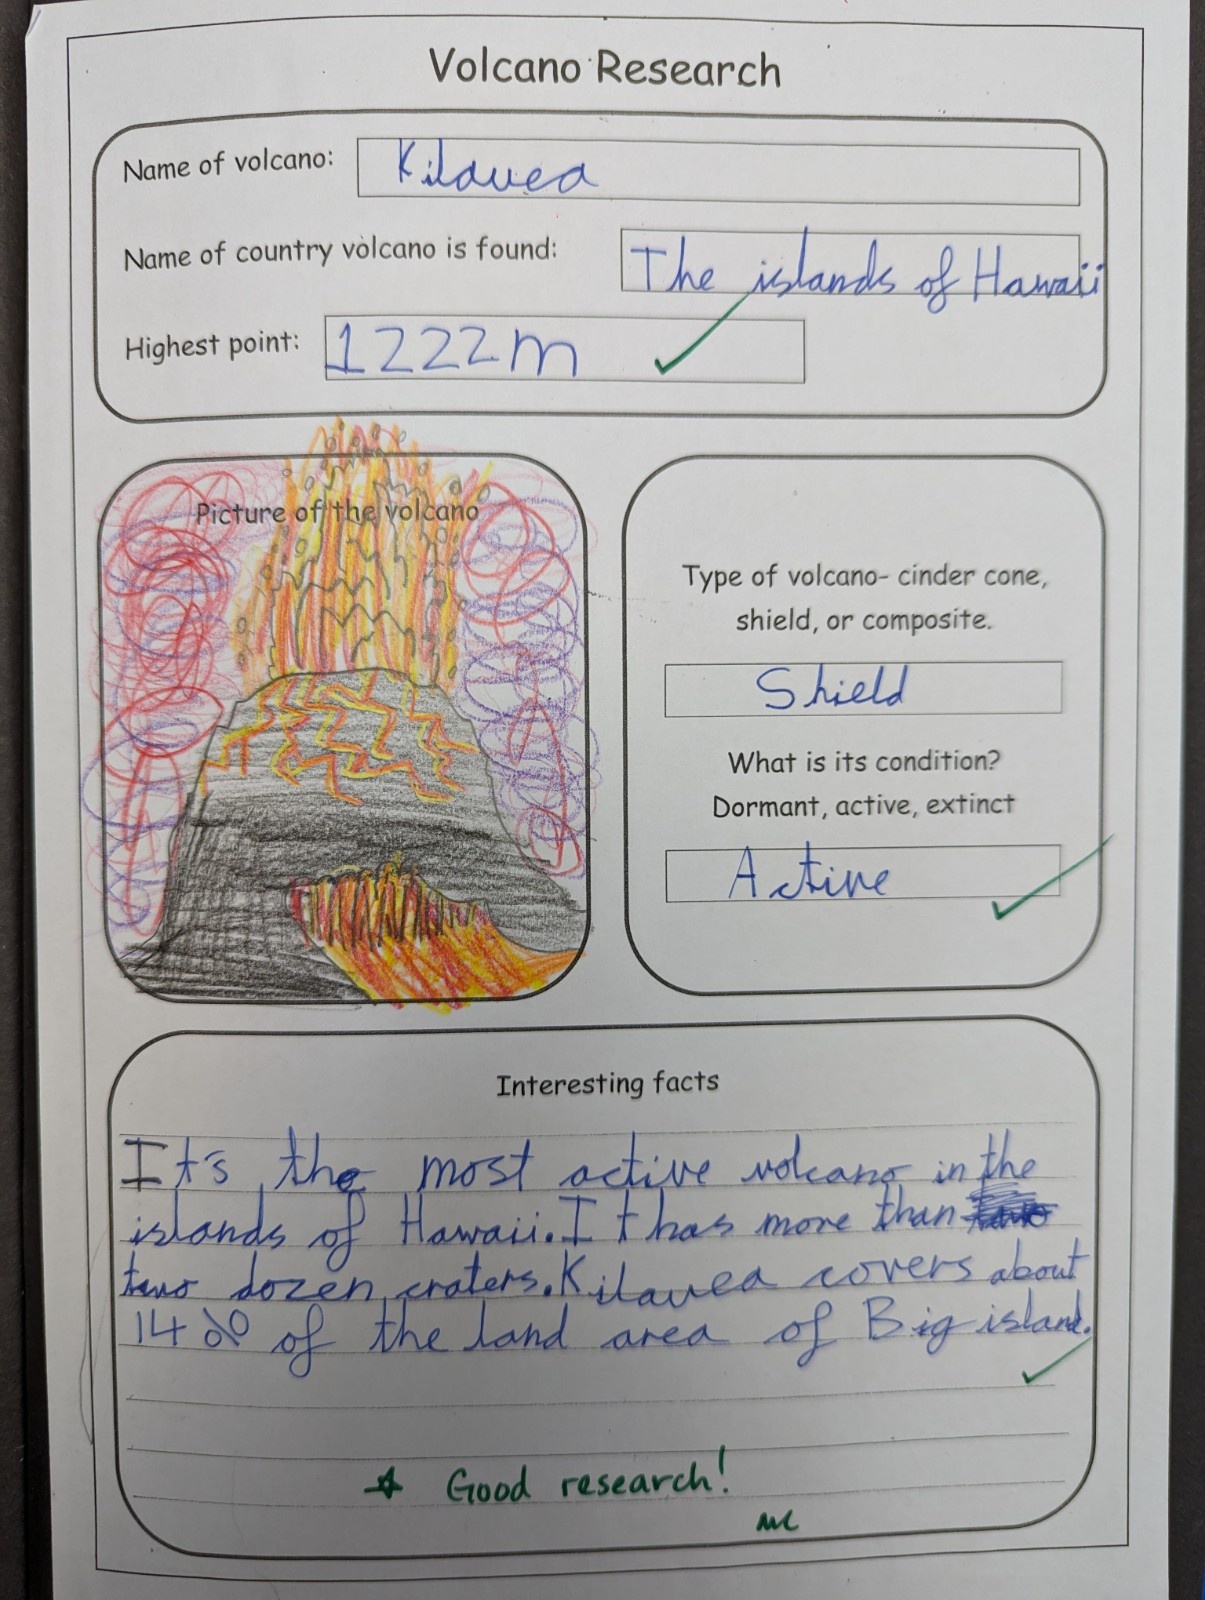 Volcano Research
Name of volcano: Kilauea
Name of country volcano is found: The islands of Hawaii
Highest point: 1222m
Picture of the volcano
Type of volcano- cinder cone,
shield, or composite.
Shield
What is its condition?
Dormant, active, extinct
Active
Interesting facts
It's the most active volcano in the
islands of Hawaii. It has more than
two dozen craters. Kilauea covers about
14% of the land area of Big island.
Good research!